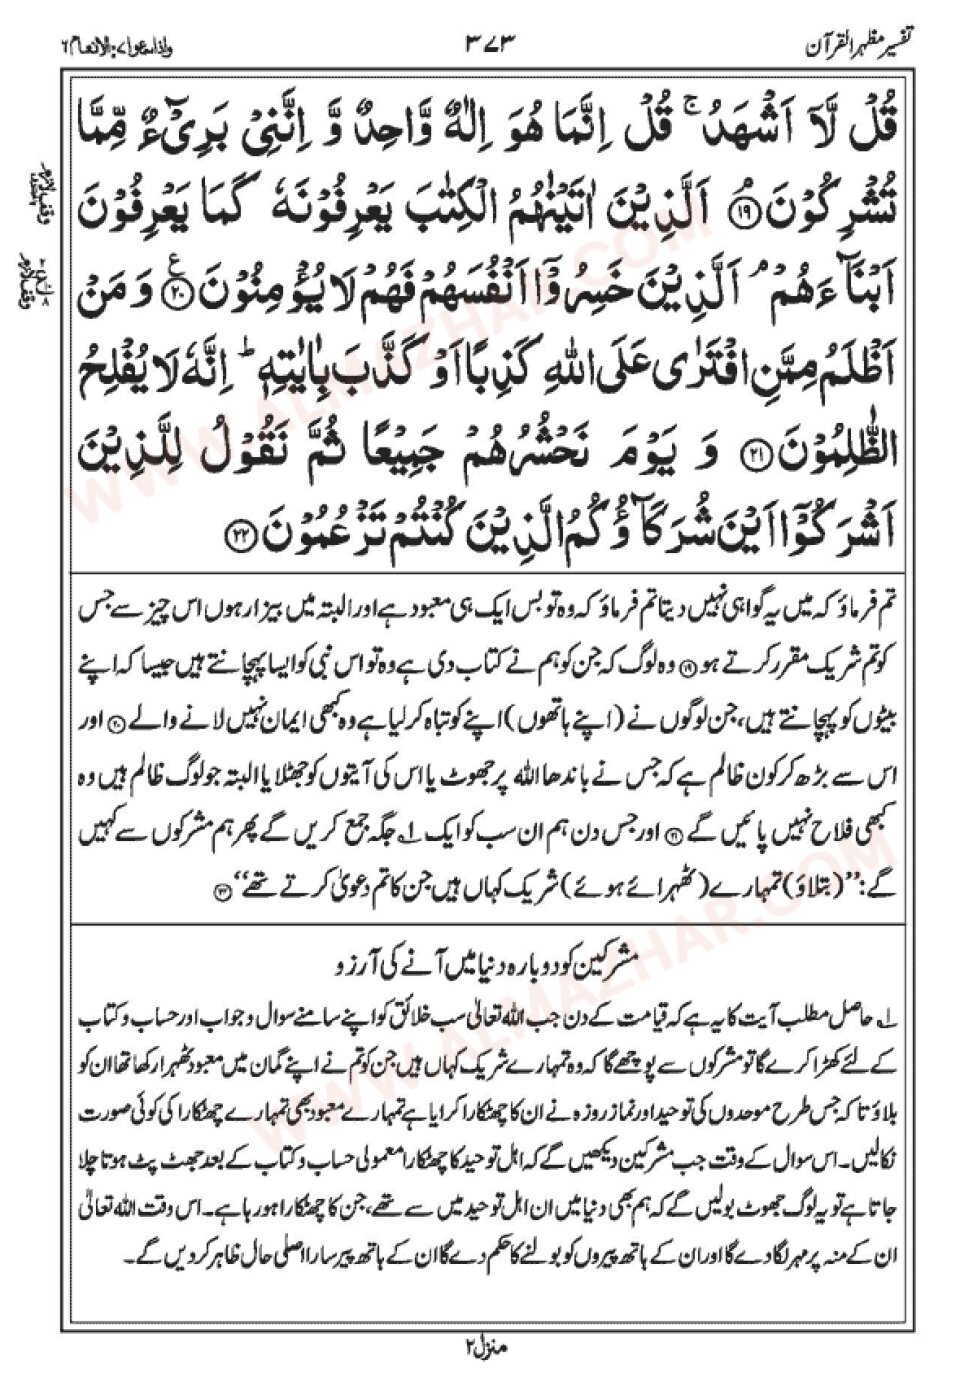 تفسیر مظہر القرآن
۳۷۳
واذا سمعوا ۷ : الانعام ۶
قُلْ لَّاۤ اَشْهَدُ ۚ قُلْ اِنَّمَا هُوَ اِلٰهٌ وَّاحِدٌ وَّ اِنَّنِیْ بَرِیْٓءٌ مِّمَّا
تُشْرِكُوْنَ ۘ﴿۱۹﴾ اَلَّذِیْنَ اٰتَیْنٰهُمُ الْكِتٰبَ یَعْرِفُوْنَهٗ كَمَا یَعْرِفُوْنَ
اَبْنَآءَهُمْ ۘ اَلَّذِیْنَ خَسِرُوْۤا اَنْفُسَهُمْ فَهُمْ لَا یُؤْمِنُوْنَ ﴿۲۰﴾ۧ وَ مَنْ
اَظْلَمُ مِمَّنِ افْتَرٰی عَلَی اللّٰهِ كَذِبًا اَوْ كَذَّبَ بِاٰیٰتِهٖ ؕ اِنَّهٗ لَا یُفْلِحُ
الظّٰلِمُوْنَ ﴿۲۱﴾ وَ یَوْمَ نَحْشُرُهُمْ جَمِیْعًا ثُمَّ نَقُوْلُ لِلَّذِیْنَ
اَشْرَكُوْۤا اَیْنَ شُرَكَآؤُكُمُ الَّذِیْنَ كُنْتُمْ تَزْعُمُوْنَ ﴿۲۲﴾
تم فرماؤ کہ میں یہ گواہی نہیں دیتا تم فرماؤ کہ وہ تو بس ایک ہی معبود ہے اور البتہ میں بیزار ہوں اس چیز سے جس
کو تم شریک مقرر کرتے ہو ﴿۱۹﴾ وہ لوگ کہ جن کو ہم نے کتاب دی ہے وہ تو اس نبی کو ایسا پہچانتے ہیں جیسا کہ اپنے
بیٹوں کو پہچانتے ہیں، جن لوگوں نے (اپنے ہاتھوں) اپنے کو تباہ کر لیا ہے وہ کبھی ایمان نہیں لانے والے ﴿۲۰﴾ اور
اس سے بڑھ کر کون ظالم ہے کہ جس نے باندھا اللہ پر جھوٹ یا اس کی آیتوں کو جھٹلایا البتہ جو لوگ ظالم ہیں وہ
کبھی فلاح نہیں پائیں گے ﴿۲۱﴾ اور جس دن ہم ان سب کو ایک ۱؎ جگہ جمع کریں گے پھر ہم مشرکوں سے کہیں
گے: ’’(بتلاؤ) تمہارے (ٹھہرائے ہوئے) شریک کہاں ہیں جن کا تم دعویٰ کرتے تھے‘‘ ﴿۲۲﴾
مشرکین کو دوبارہ دنیا میں آنے کی آرزو
۱؎ حاصل مطلب آیت کا یہ ہے کہ قیامت کے دن جب اللہ تعالیٰ سب خلائق کو اپنے سامنے سوال و جواب اور حساب و کتاب
کے لئے کھڑا کرے گا تو مشرکوں سے پوچھے گا کہ وہ تمہارے شریک کہاں ہیں جن کو تم نے اپنے گمان میں معبود ٹھہرا رکھا تھا ان کو
بلاؤ تا کہ جس طرح موحدوں کی توحید اور نماز روزہ نے ان کا چھٹکارا کرایا ہے تمہارے معبود بھی تمہارے چھٹکارا کی کوئی صورت
نکالیں۔ اس سوال کے وقت جب مشرکین دیکھیں گے کہ اہل توحید کا چھٹکارا معمولی حساب و کتاب کے بعد جھٹ پٹ ہوتا چلا
جاتا ہے تو یہ لوگ جھوٹ بولیں گے کہ ہم بھی دنیا میں ان اہل توحید میں سے تھے، جن کا چھٹکارا ہو رہا ہے۔ اس وقت اللہ تعالیٰ
ان کے منہ پر مہر لگا دے گا اور ان کے ہاتھ پیروں کو بولنے کا حکم دے گا ان کے ہاتھ پیر سارا اصلی حال ظاہر کر دیں گے۔
منزل ۲
WWW.ALMAZHAR.COM
WWW.ALMAZHAR.COM